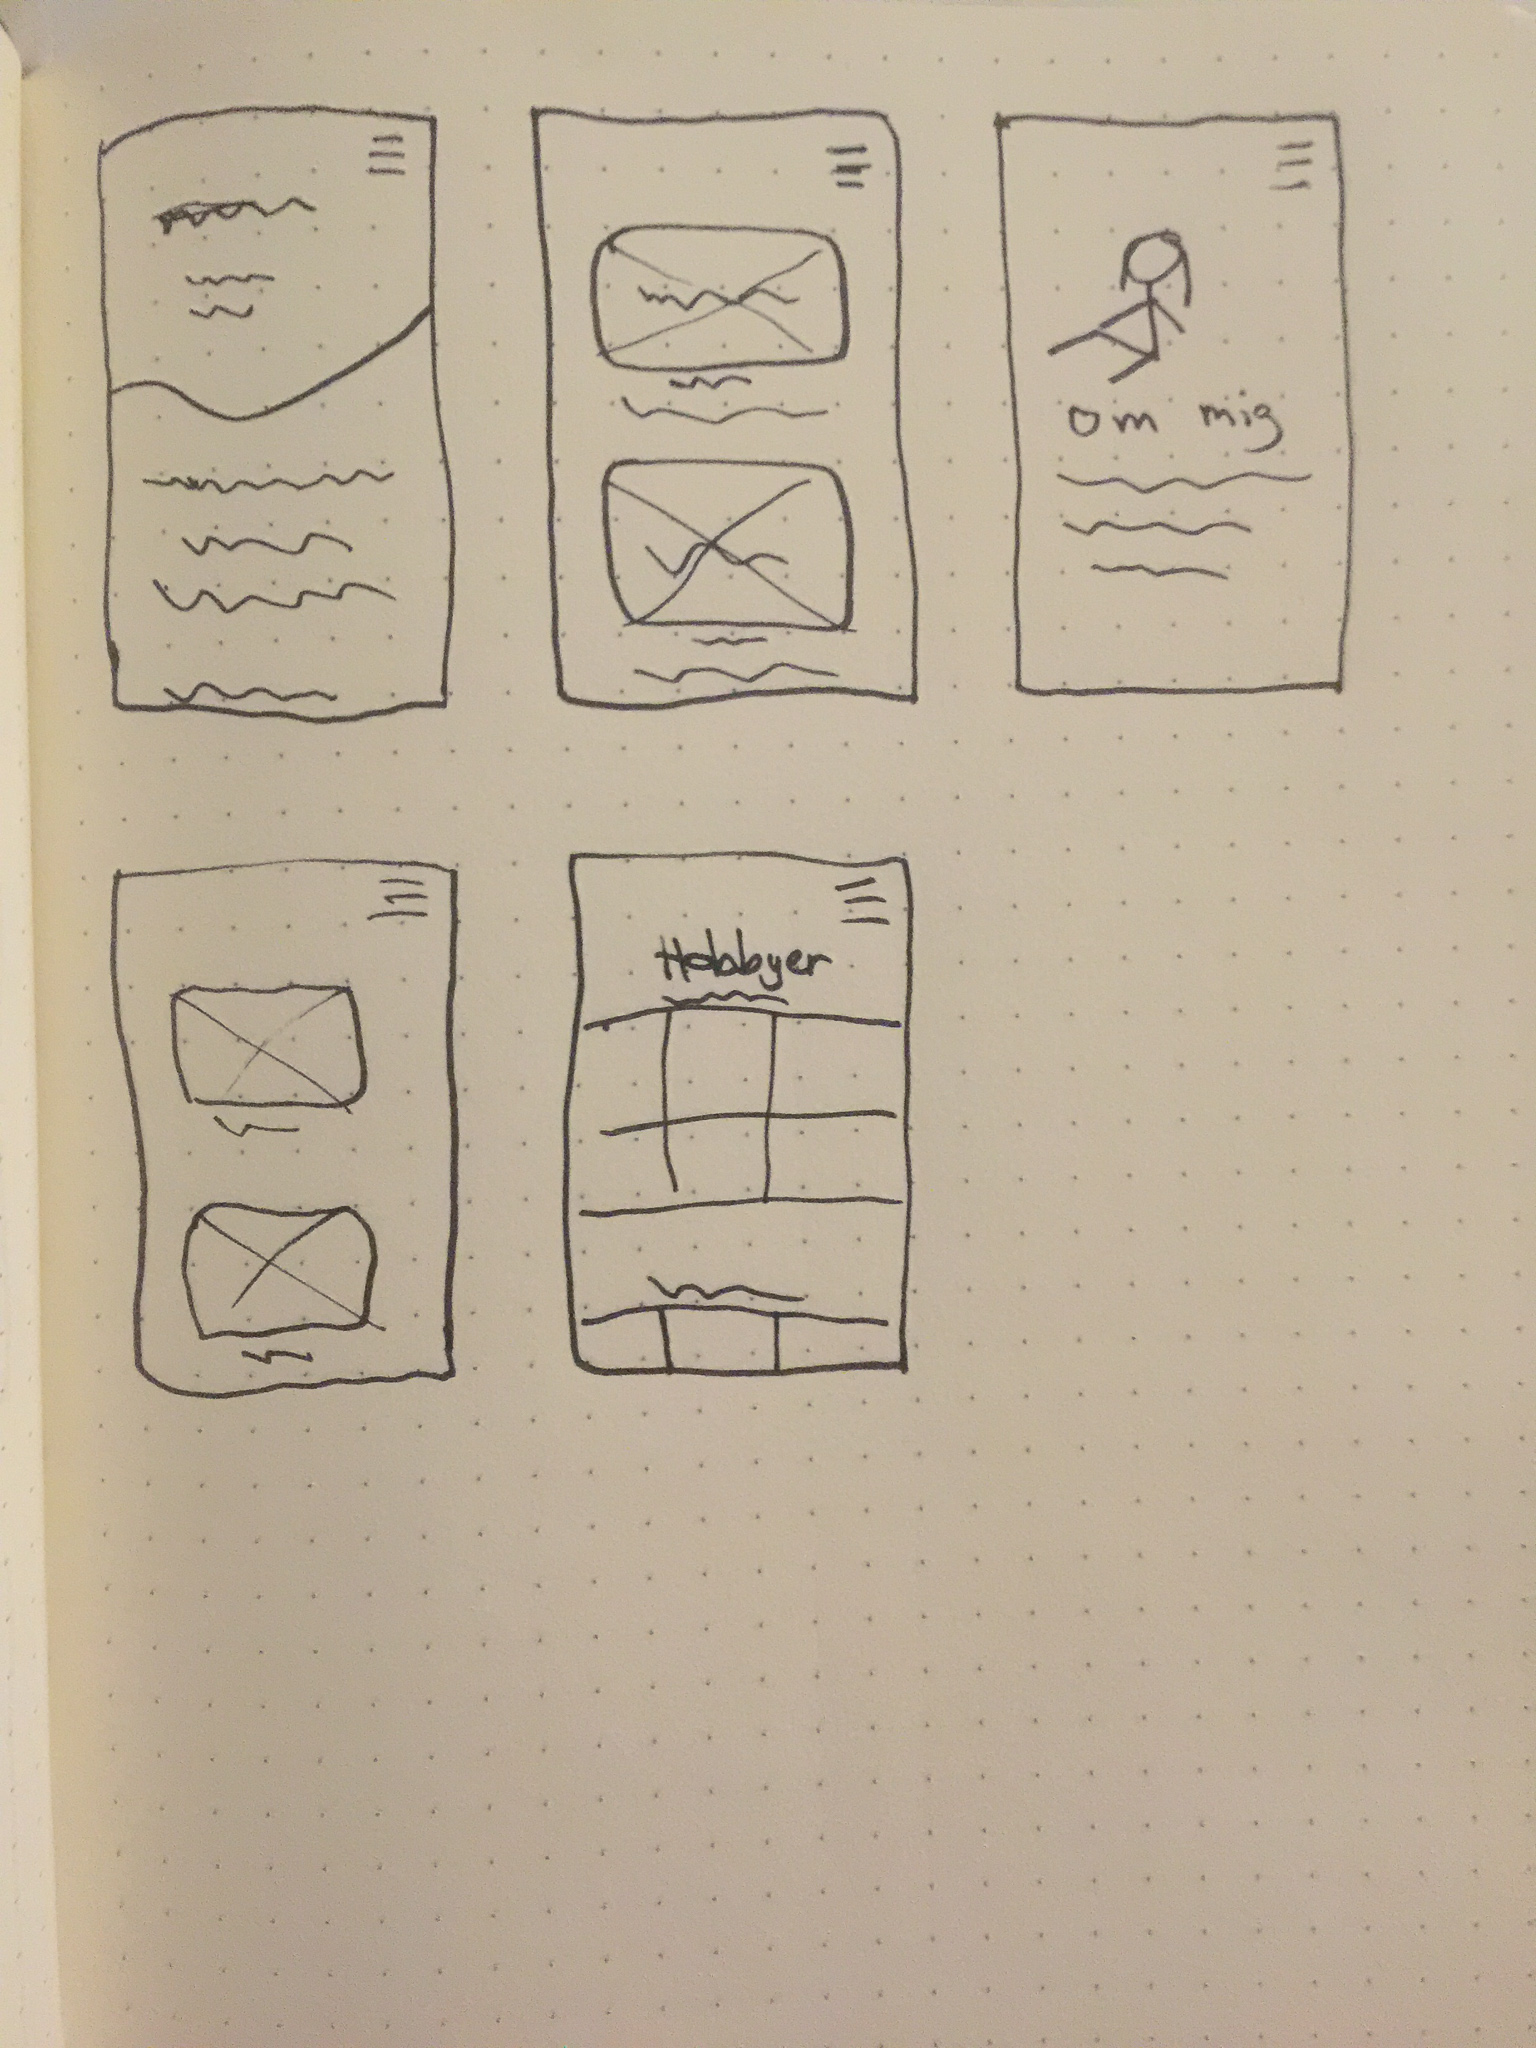 om mig
Hobbyer